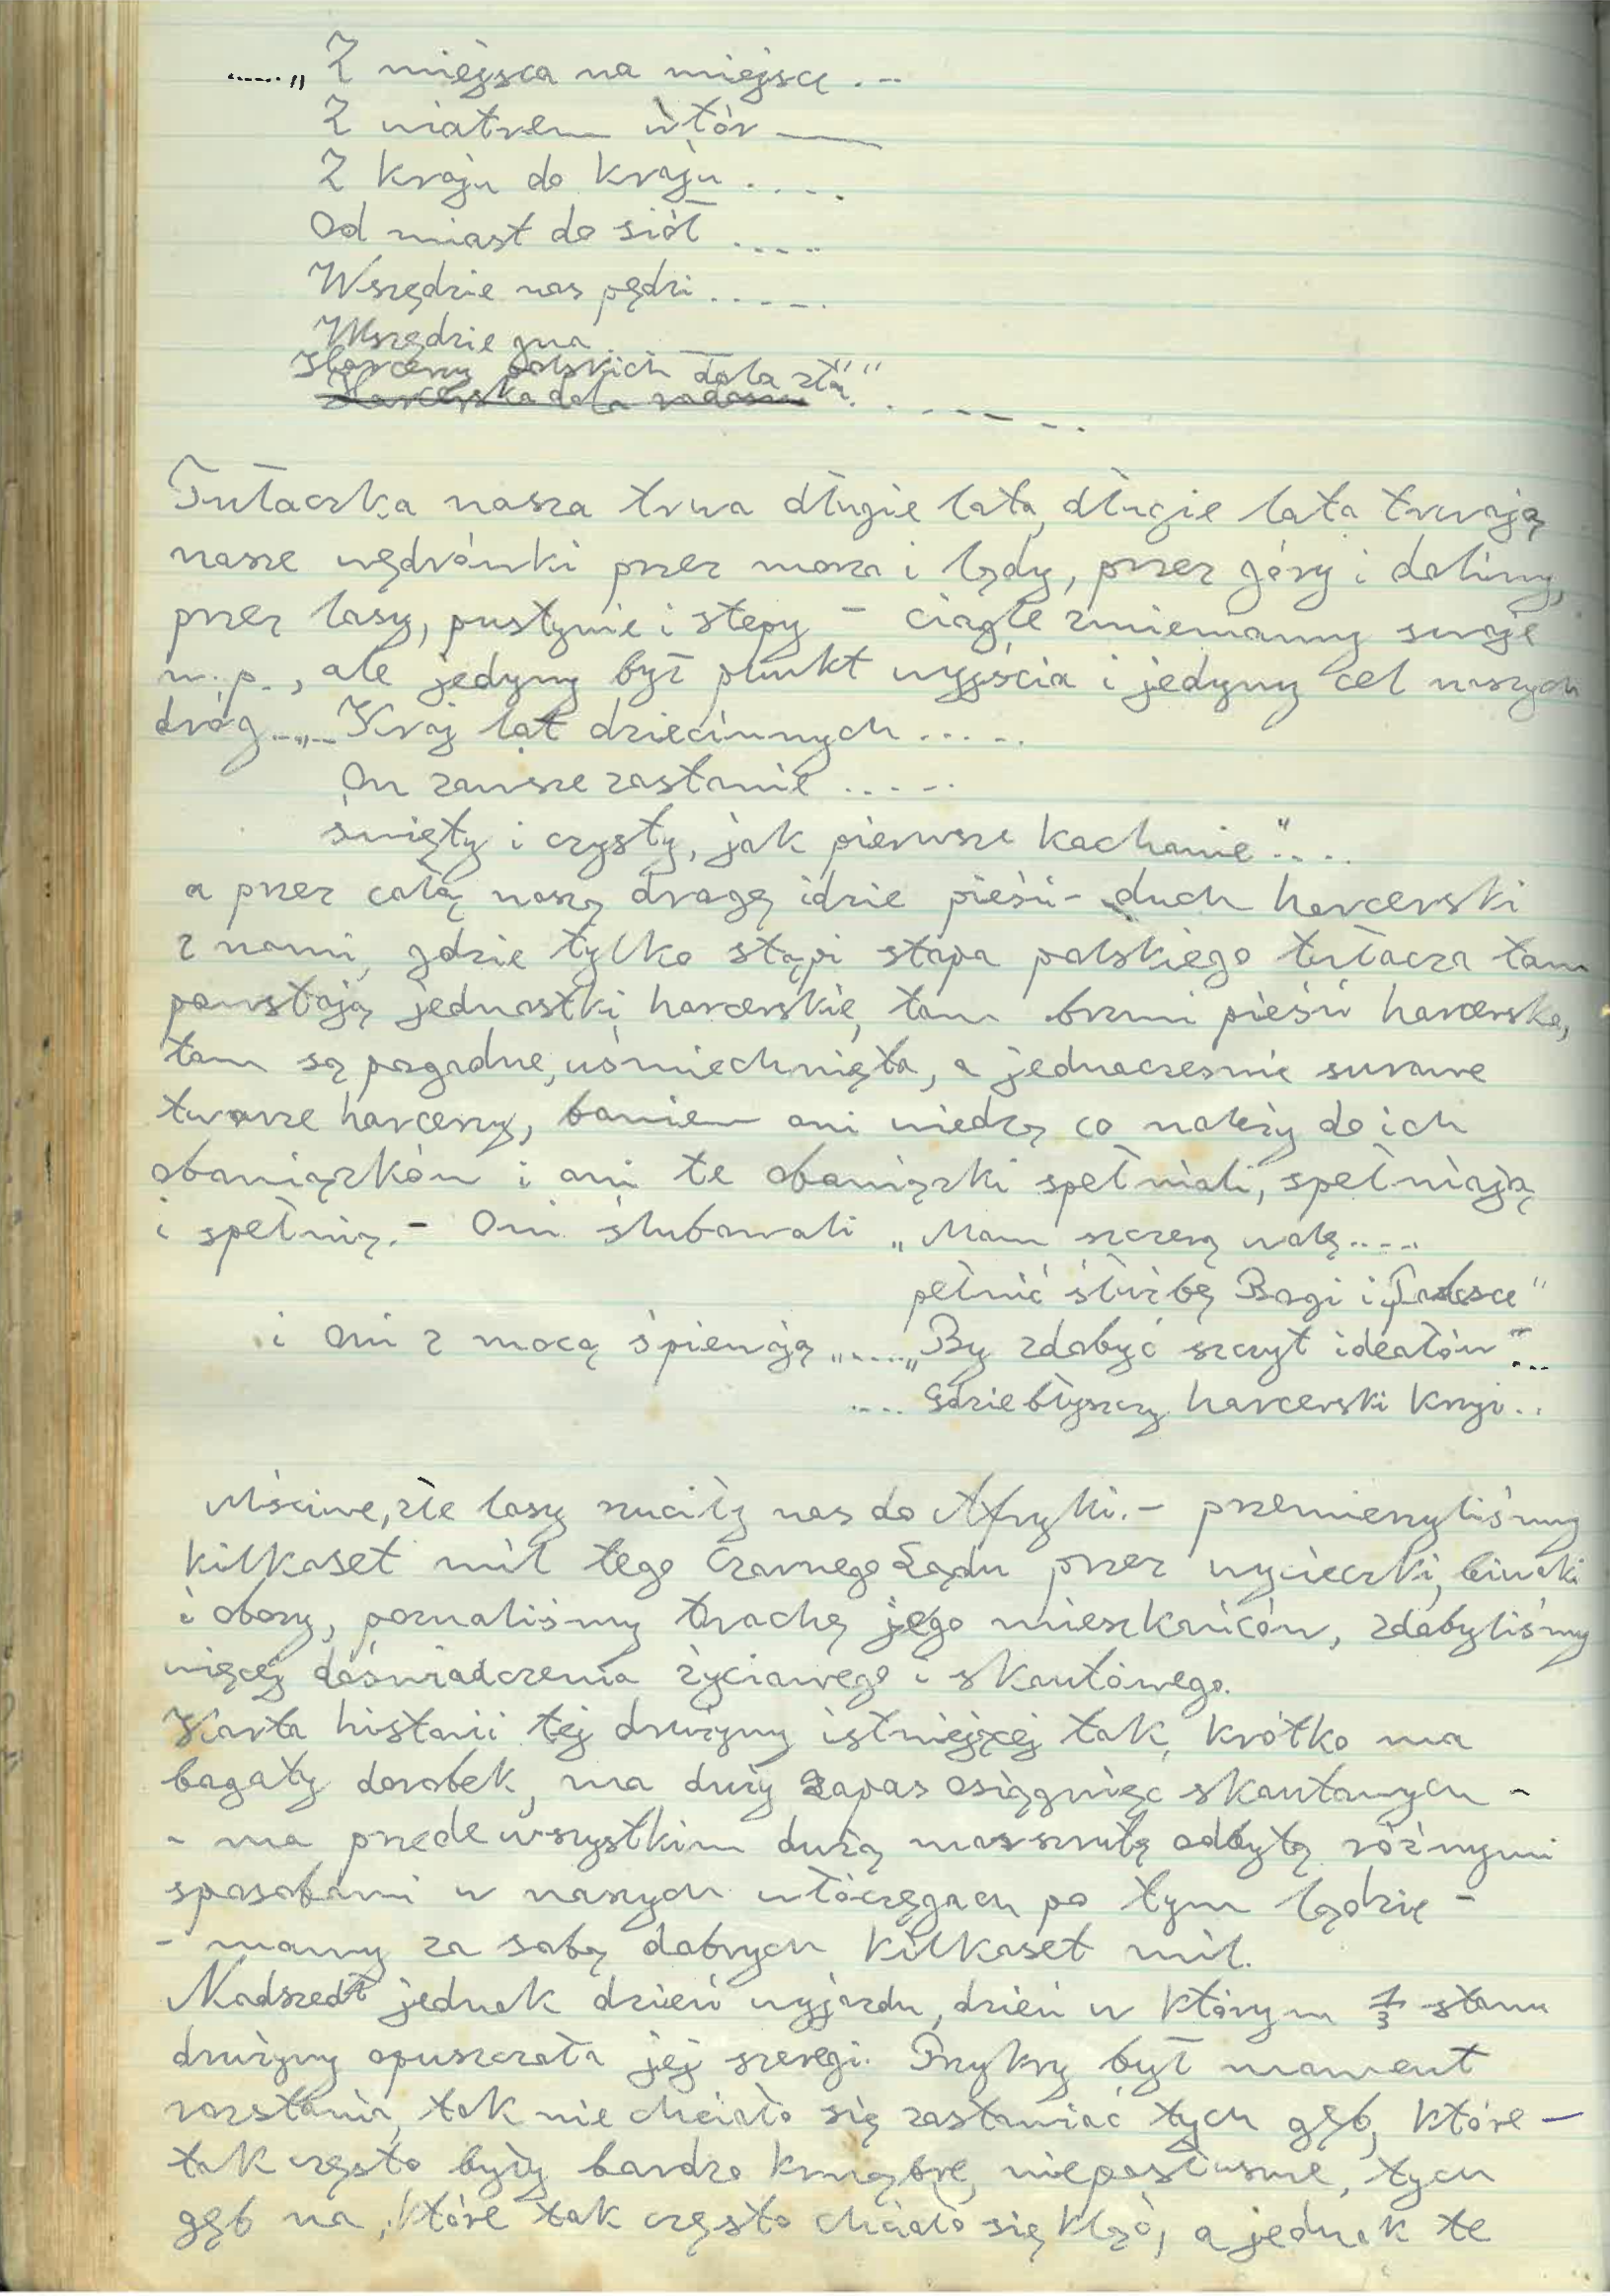 ....." Z miejsca na miejsce . --
Z wiatrem wtór ——
Z kraju do kraju . . . .
Od miast do siół . . . .
Wszędzie nas pędzi . . . . .
Wszędzie gna . . ——
Harcerzy polskich dola zła" "
Harcerska dola radosna . . . . .
Tułaczka nasza trwa długie lata, długie lata trwają
nasze wędrówki przez morza i lądy, przez góry i doliny,
przez lasy, pustynie i stepy – ciągle zmieniamy swoje
m.p., ale jedyny był punkt wyjścia i jedyny cel naszych
dróg..„.. Kraj lat dziecinnych .....
On zawsze zostanie .....
święty i czysty, jak pierwsze kochanie"....
a przez całą naszą drogę idzie pieśń – duch harcerski
z nami, gdzie tylko stąpi stopa polskiego tułacza tam
powstają jednostki harcerskie, tam brzmi pieśń harcerska,
tam są pogodne, uśmiechnięta, a jednocześnie surowe
twarze harcerzy, bowiem oni wiedzą co należy do ich
obowiązków i oni te obowiązki spełniali, spełniają
i spełnią. – Oni ślubowali „Mam szczerą wolę....
pełnić służbę Bogi i Polsce"
i oni z mocą śpiewają „....„By zdobyć szczyt ideałów"...
.... Gdzie błyszczy harcerski krzyż..
Mściwe, złe losy rzuciły nas do Afryki. – przemierzyliśmy
kilkaset mil tego Czarnego Lądu przez wycieczki, biwaki
i obozy, poznaliśmy trochę jego mieszkańców, zdobyliśmy
więcej doświadczenia życiowego i skautowego.
Karta historii tej drużyny istniejącej tak krótko ma
bogaty dorobek, ma duży zapas osiągnięć skautowych –
– ma przede wszystkim dużą marszrutę odbytą różnymi
sposobami w naszych włóczęgach po tym lądzie –
– mamy za sobą dobrych kilkaset mil.
Nadszedł jednak dzień wyjazdu, dzień w którym 1/3 stanu
drużyny opuszczała jej szeregi. Przykry był moment
rozstania, tak nie chciało się zostawiać tych gęb, które –
tak często były bardzo krnąbrne, nieposłuszne, tych
gęb na, które tak często chciało się kląć, a jednak te